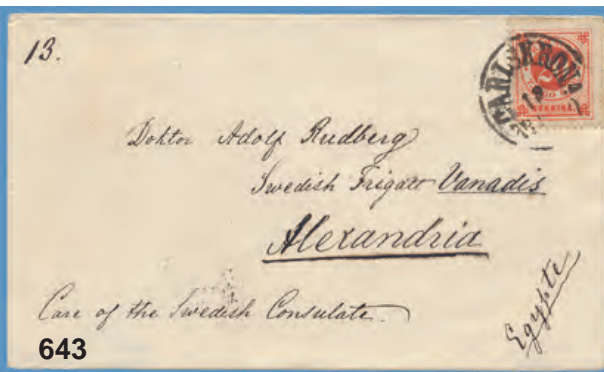 13.
CARLSKRONA
SVERIGE
Doktor Adolf Rudberg
Swedish Frigate Vanadis
Alexandria
Care of the Swedish Consulate
Egypte
643